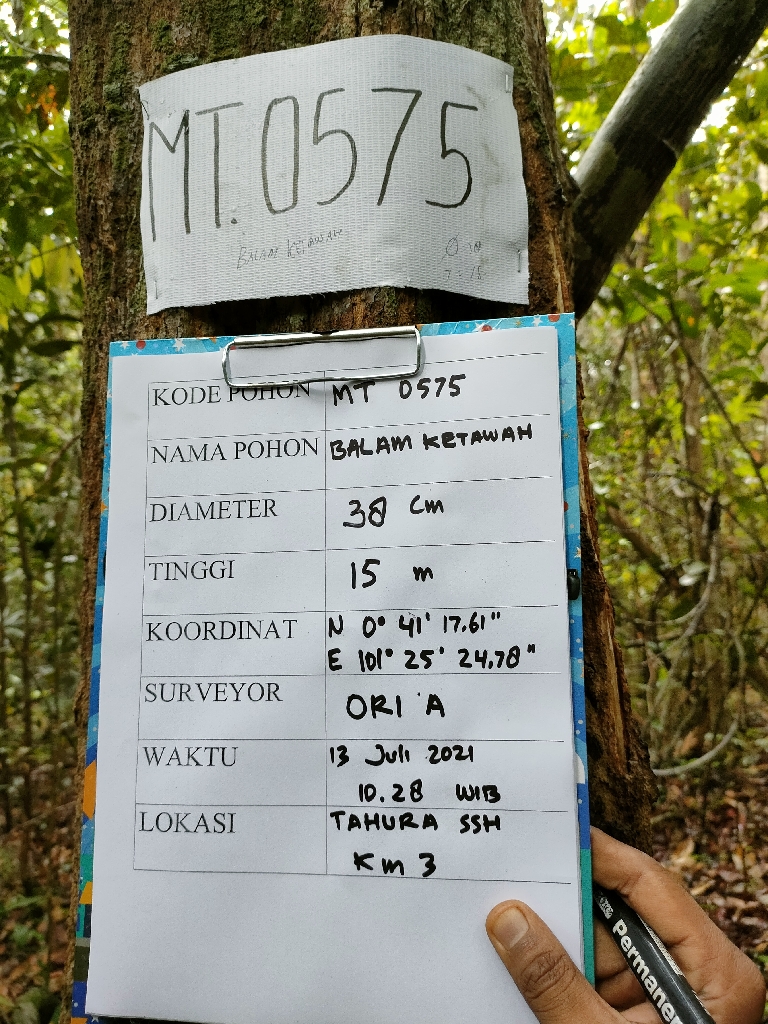 MT.0575
BALAM KETAWAH
KODE POHON MT 0575
NAMA POHON BALAM KETAWAH
DIAMETER 38 Cm
TINGGI 15 m
KOORDINAT N 0° 41' 17.61"
E 101° 25' 24.78"
SURVEYOR ORI A
WAKTU 13 Juli 2021
10.28 WIB
LOKASI TAHURA SSH
Km 3
Permanen